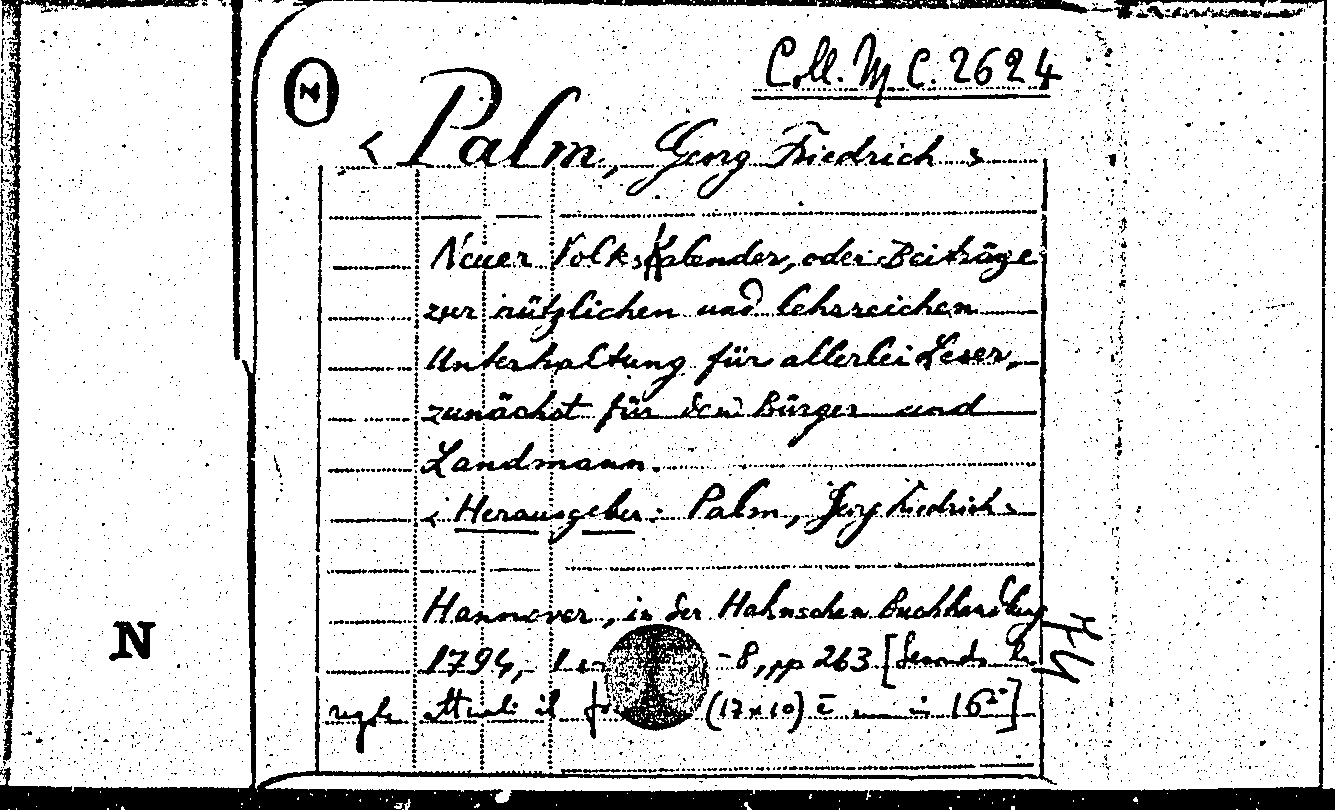 Coll. M C. 2624
N
< Palm, Georg Friedrich >
Neuer VolksKalender, oder Beiträge
zur nützlichen und lehrreichen
Unterhaltung für allerlei Leser,
zunächst für den Bürger und
Landmann.
< Herausgeber: Palm, Georg Friedrich >
Hannover, in der Hahnschen Buchhandlung
1794, -8, pp 263 [
il (17x10) in 16°]
N